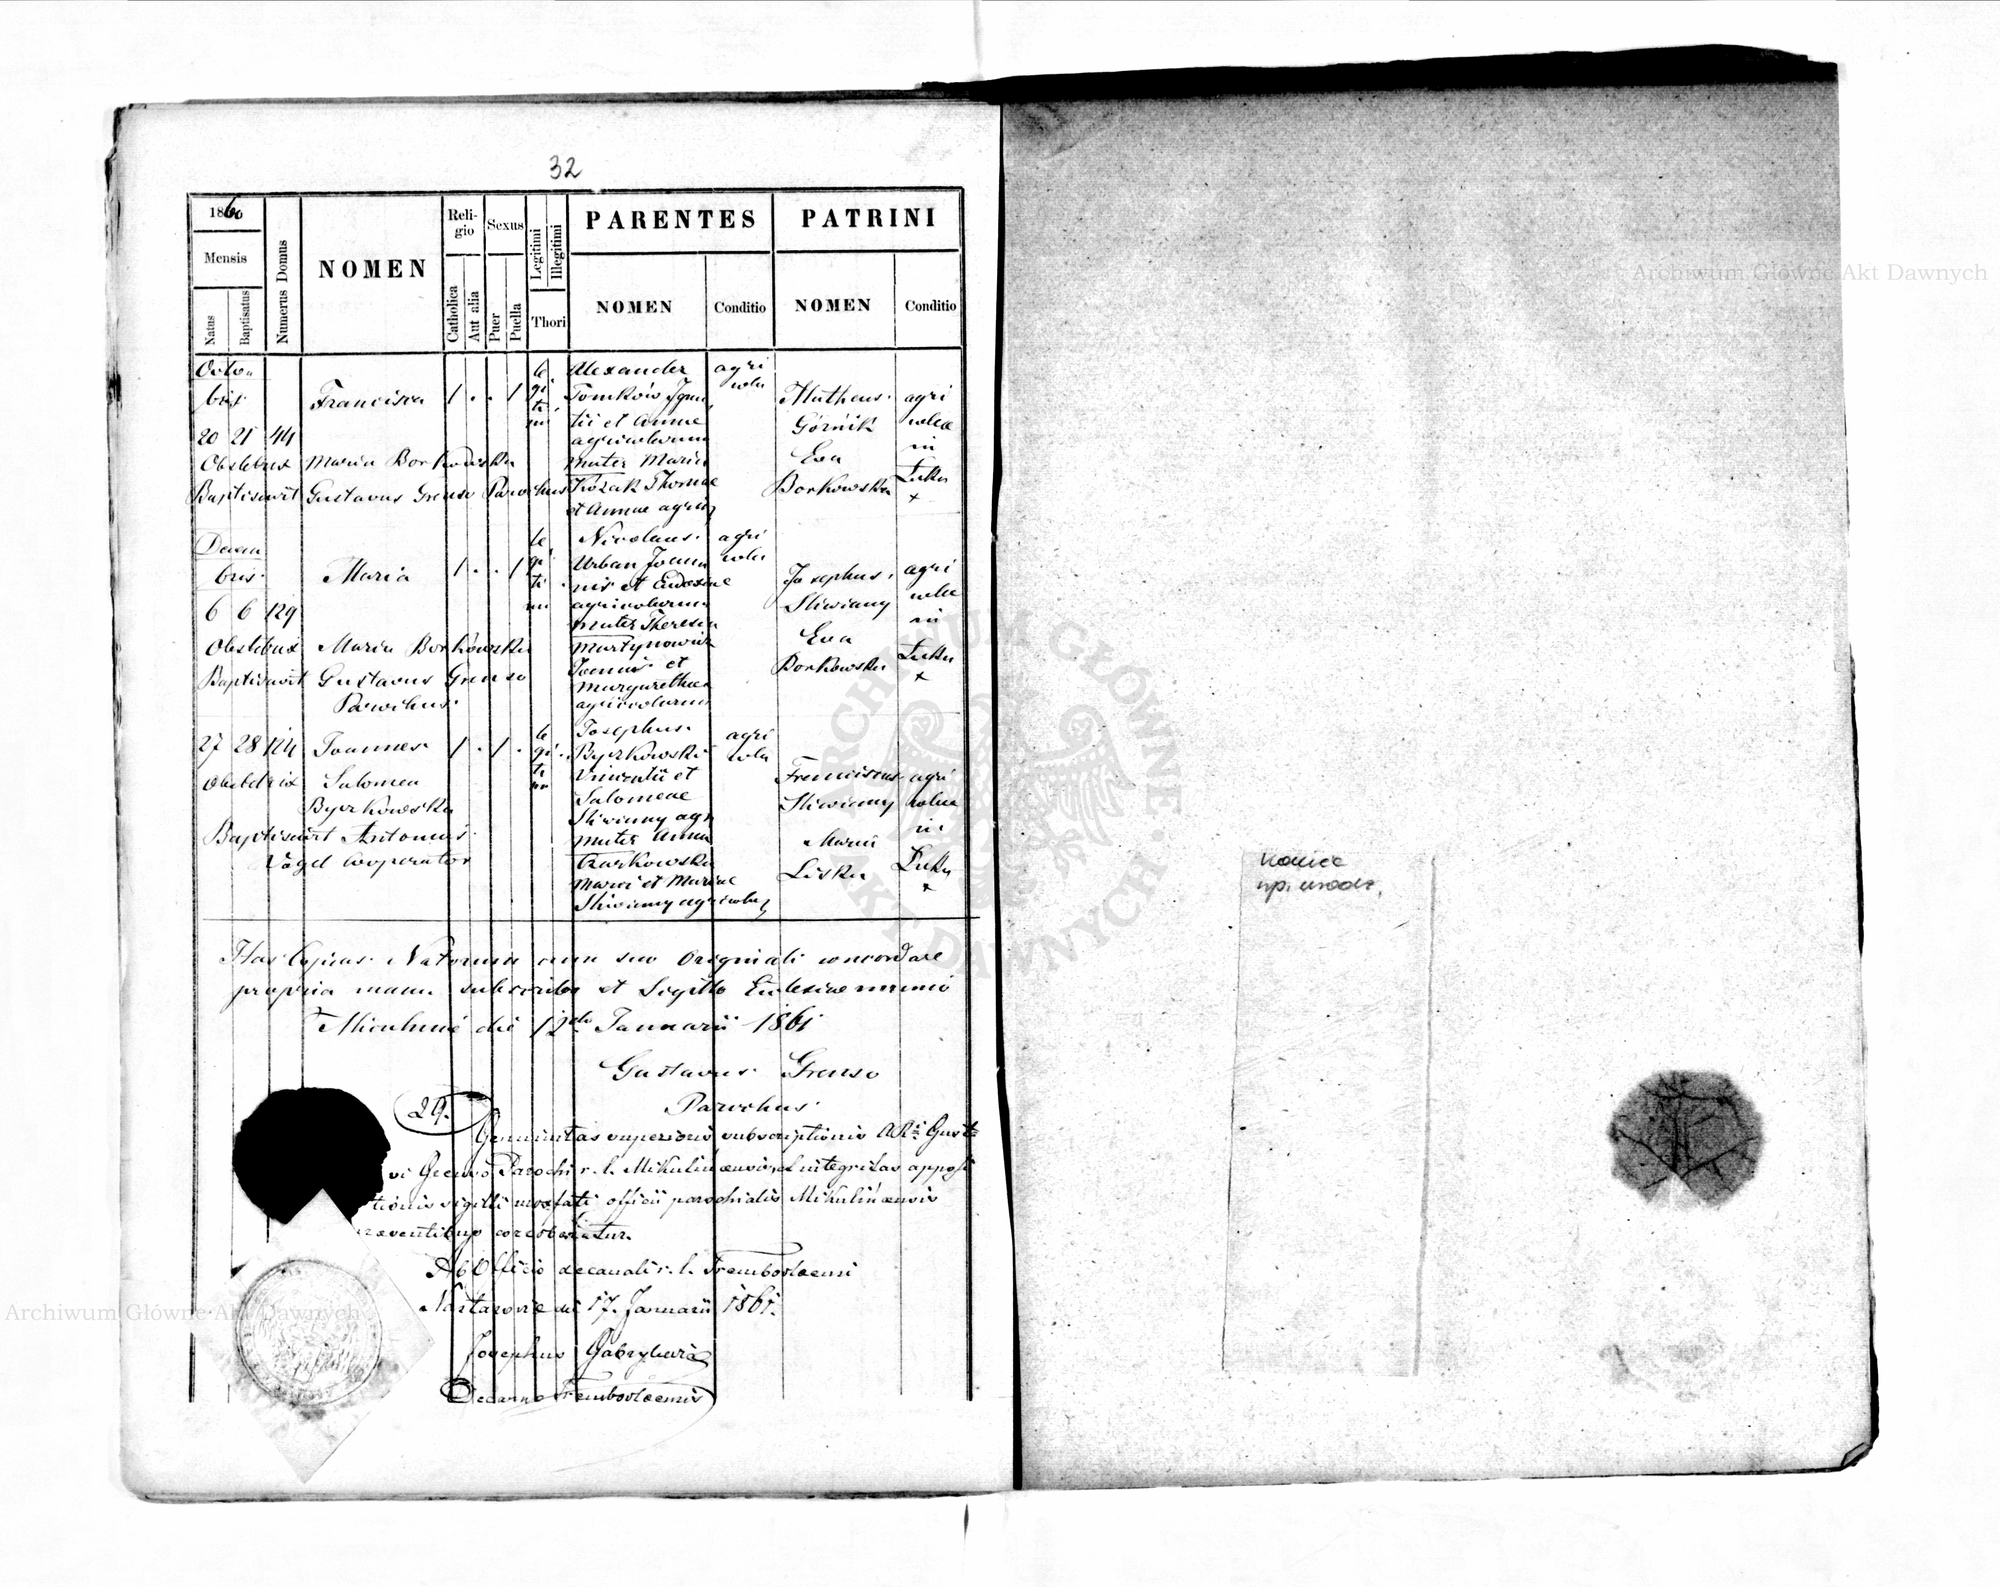 32
1860
Mensis
Natus
Baptisatus
Numerus Domus
NOMEN
Reli-
gio
Catholica
Aut alia
Sexus
Puer
Puella
Legitimi
Illegitimi
Thori
PARENTES
NOMEN
Conditio
PATRINI
NOMEN
Conditio
Octo
bris
20 21 44
Francisca
1 . . 1
le
gi
ti
mi
Alexander
Tomków Igna
tii et Annae
agricolarum
mater Maria
Kozak Thomae
et Annae agric
agri
cola
Matheus
Górnik
Eva
Borkowska
agri
colae
in
Luka
+
Obstetrix Maria Borkowska
Baptisavit Gustavus Greuso Parochus
Decem
bris
6 6 129
Maria
1 . . 1
le
gi
ti
mi
Nicolaus
Urban Joan
nis et Eudoxiae
agricolarum
mater Theresia
Martynowicz
Joannis et
Margarethae
agricolarum
agri
cola
Josephus
Sliwiany
Eva
Borkowska
agri
colae
in
Luka
+
Obstetrix Maria Borkowska
Baptisavit Gustavus Greuso
Parochus
27 28 124
Joannes
1 . 1 .
le
gi
ti
mi
Josephus
Byczkowski
Vincentii et
Salomeae
Sliwiany agr
mater Anna
Czarkowska
Marci et Mariae
Sliwiany agricolar
agri
cola
Franciscus
Sliwiany
Maria
Liska
agri
colae
in
Luka
+
Obstetrix Salomea
Byczkowska
Baptisavit Antonius
Vogel Cooperator
Has Copias Natorum cum suo Originali concordare
propria manu subscribo et Sigillo Ecclesiae munio
Miculince die 12 Januarii 1861
Gustavus Greuso
Parochus
29.
Genuinitas superioris subscriptionis Gusta
vi Greuso Parochi r. l. Mikulincensis, et integritas apposi
tionis sigilli officii parochialis Mikulincensis
corroboratur.
Ab Officio decanali r. l. Trembovlaensi
Nastasovie die 17. Januarii 1861.
Josephus
Decanus Trembovlaensis
koniec
up. urodz.
Archiwum Główne Akt Dawnych
Archiwum Główne Akt Dawnych
ARCHIWUM GŁÓWNE AKT DAWNYCH